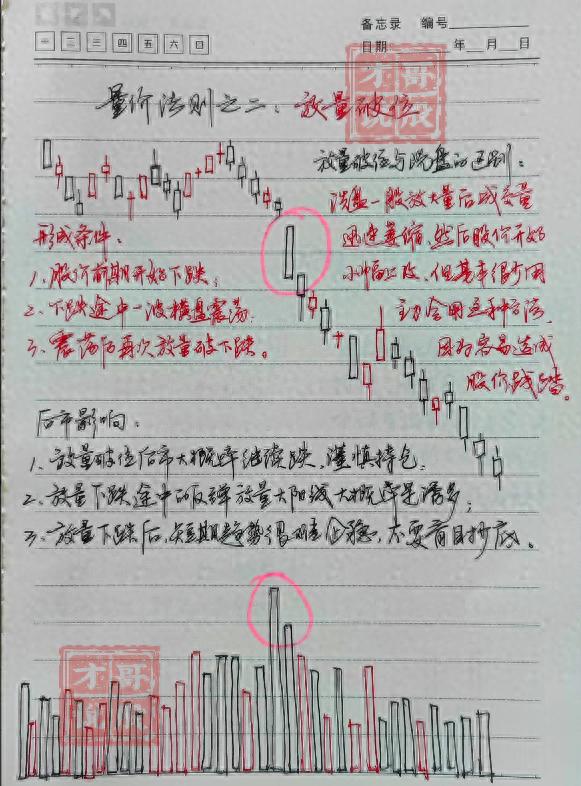 备忘录 编号
一 二 三 四 五 六 日
日期 年 月 日
量价法则之二：放量破位
放量破位与洗盘的区别：
洗盘一般放大量后成交量
迅速萎缩，然后股价开始
小幅上攻，但基本很少用
主力会用这种方法，
因为容易造成
股价践踏。
形成条件：
1、股价前期开始下跌；
2、下跌途中一波横盘震荡；
3、震荡后再次放量破下跌。
后市影响：
1、放量破位后市大概率继续跌，谨慎持仓；
2、放量下跌途中的反弹放量大阳线大概率是诱多；
3、放量下跌后，短期趋势很难企稳，不要盲目抄底。
才哥
才哥